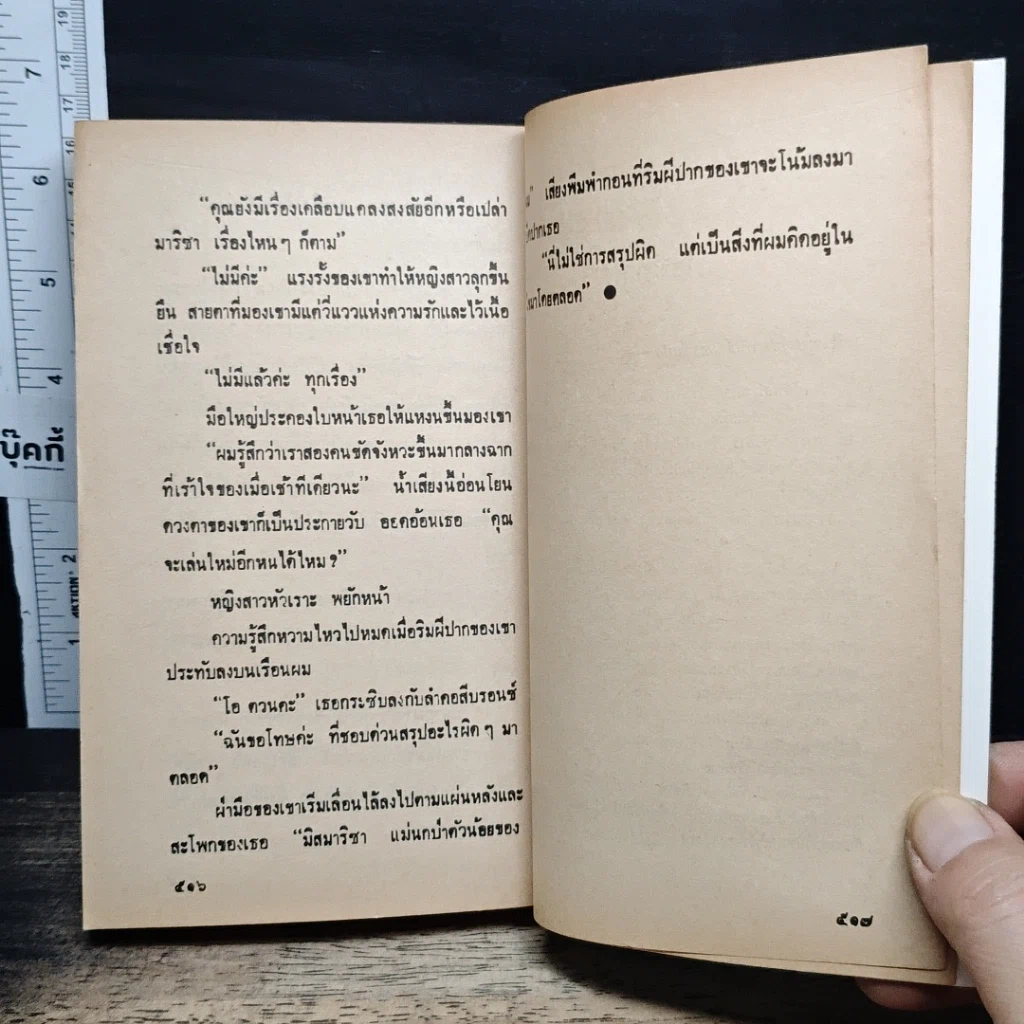 “คุณยังมีเรื่องเคลือบแคลงสงสัยอีกหรือเปล่า
มาริซา เรื่องไหนๆ ก็ตาม”
“ไม่มีค่ะ” แรงรั้งของเขาทำให้หญิงสาวลุกขึ้น
ยืน สายตาที่มองเขามีแต่วี่แววแห่งความรักและไว้เนื้อ
เชื่อใจ
“ไม่มีแล้วค่ะ ทุกเรื่อง”
มือใหญ่ประคองใบหน้าเธอให้แหงนขึ้นมองเขา
“ผมรู้สึกว่าเราสองคนขัดจังหวะขึ้นมากลางฉาก
ที่เร้าใจของเมื่อเช้าทีเดียวนะ” น้ำเสียงนี้อ่อนโยน
ดวงตาของเขาก็เป็นประกายวับ ออดอ้อนเธอ “คุณ
จะเล่นใหม่อีกหนได้ไหม?”
หญิงสาวหัวเราะ พยักหน้า
ความรู้สึกหวามไหวไปหมดเมื่อริมฝีปากของเขา
ประทับลงบนเรือนผม
“โอ ดวนคะ” เธอกระซิบลงกับลำคอสีบรอนซ์
“ฉันขอโทษค่ะ ที่ชอบด่วนสรุปอะไรผิดๆ มา
ตลอด”
ฝ่ามือของเขาเริ่มเลื่อนไล้ลงไปตามแผ่นหลังและ
สะโพกของเธอ “มิสมาริซา แม่นกป่าตัวน้อยของ
๕๑๖
เสียงพึมพำก่อนที่ริมฝีปากของเขาจะโน้มลงมา
ปากเธอ
“นี่ไม่ใช่การสรุปผิด แต่เป็นสิ่งที่ผมคิดอยู่ใน
มาโดยตลอด” ●
๕๑๗
บุ๊คก
7
6
5
4
2
1
19
18
17
16